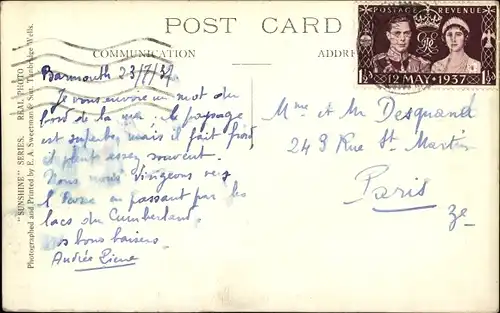 POST CARD
COMMUNICATION
ADDRE
POSTAGE REVENUE
1½D
12 MAY · 1937
"SUNSHINE" SERIES. REAL PHOTO
Photographed and Printed by E. A. Sweetman & Son, Tunbridge Wells.
Barmouth 23/7/37
Je vous envoie un mot du
bord de la mer, le paysage
est superbe, mais il fait froid
et pleut assez souvent.
Nous nous dirigeons vers
l'Ecosse en passant par les
lacs du Cumberland.
os bons baisers.
Andrée
Mme et Mr Desquand
249 Rue St. Martin
Paris
3e